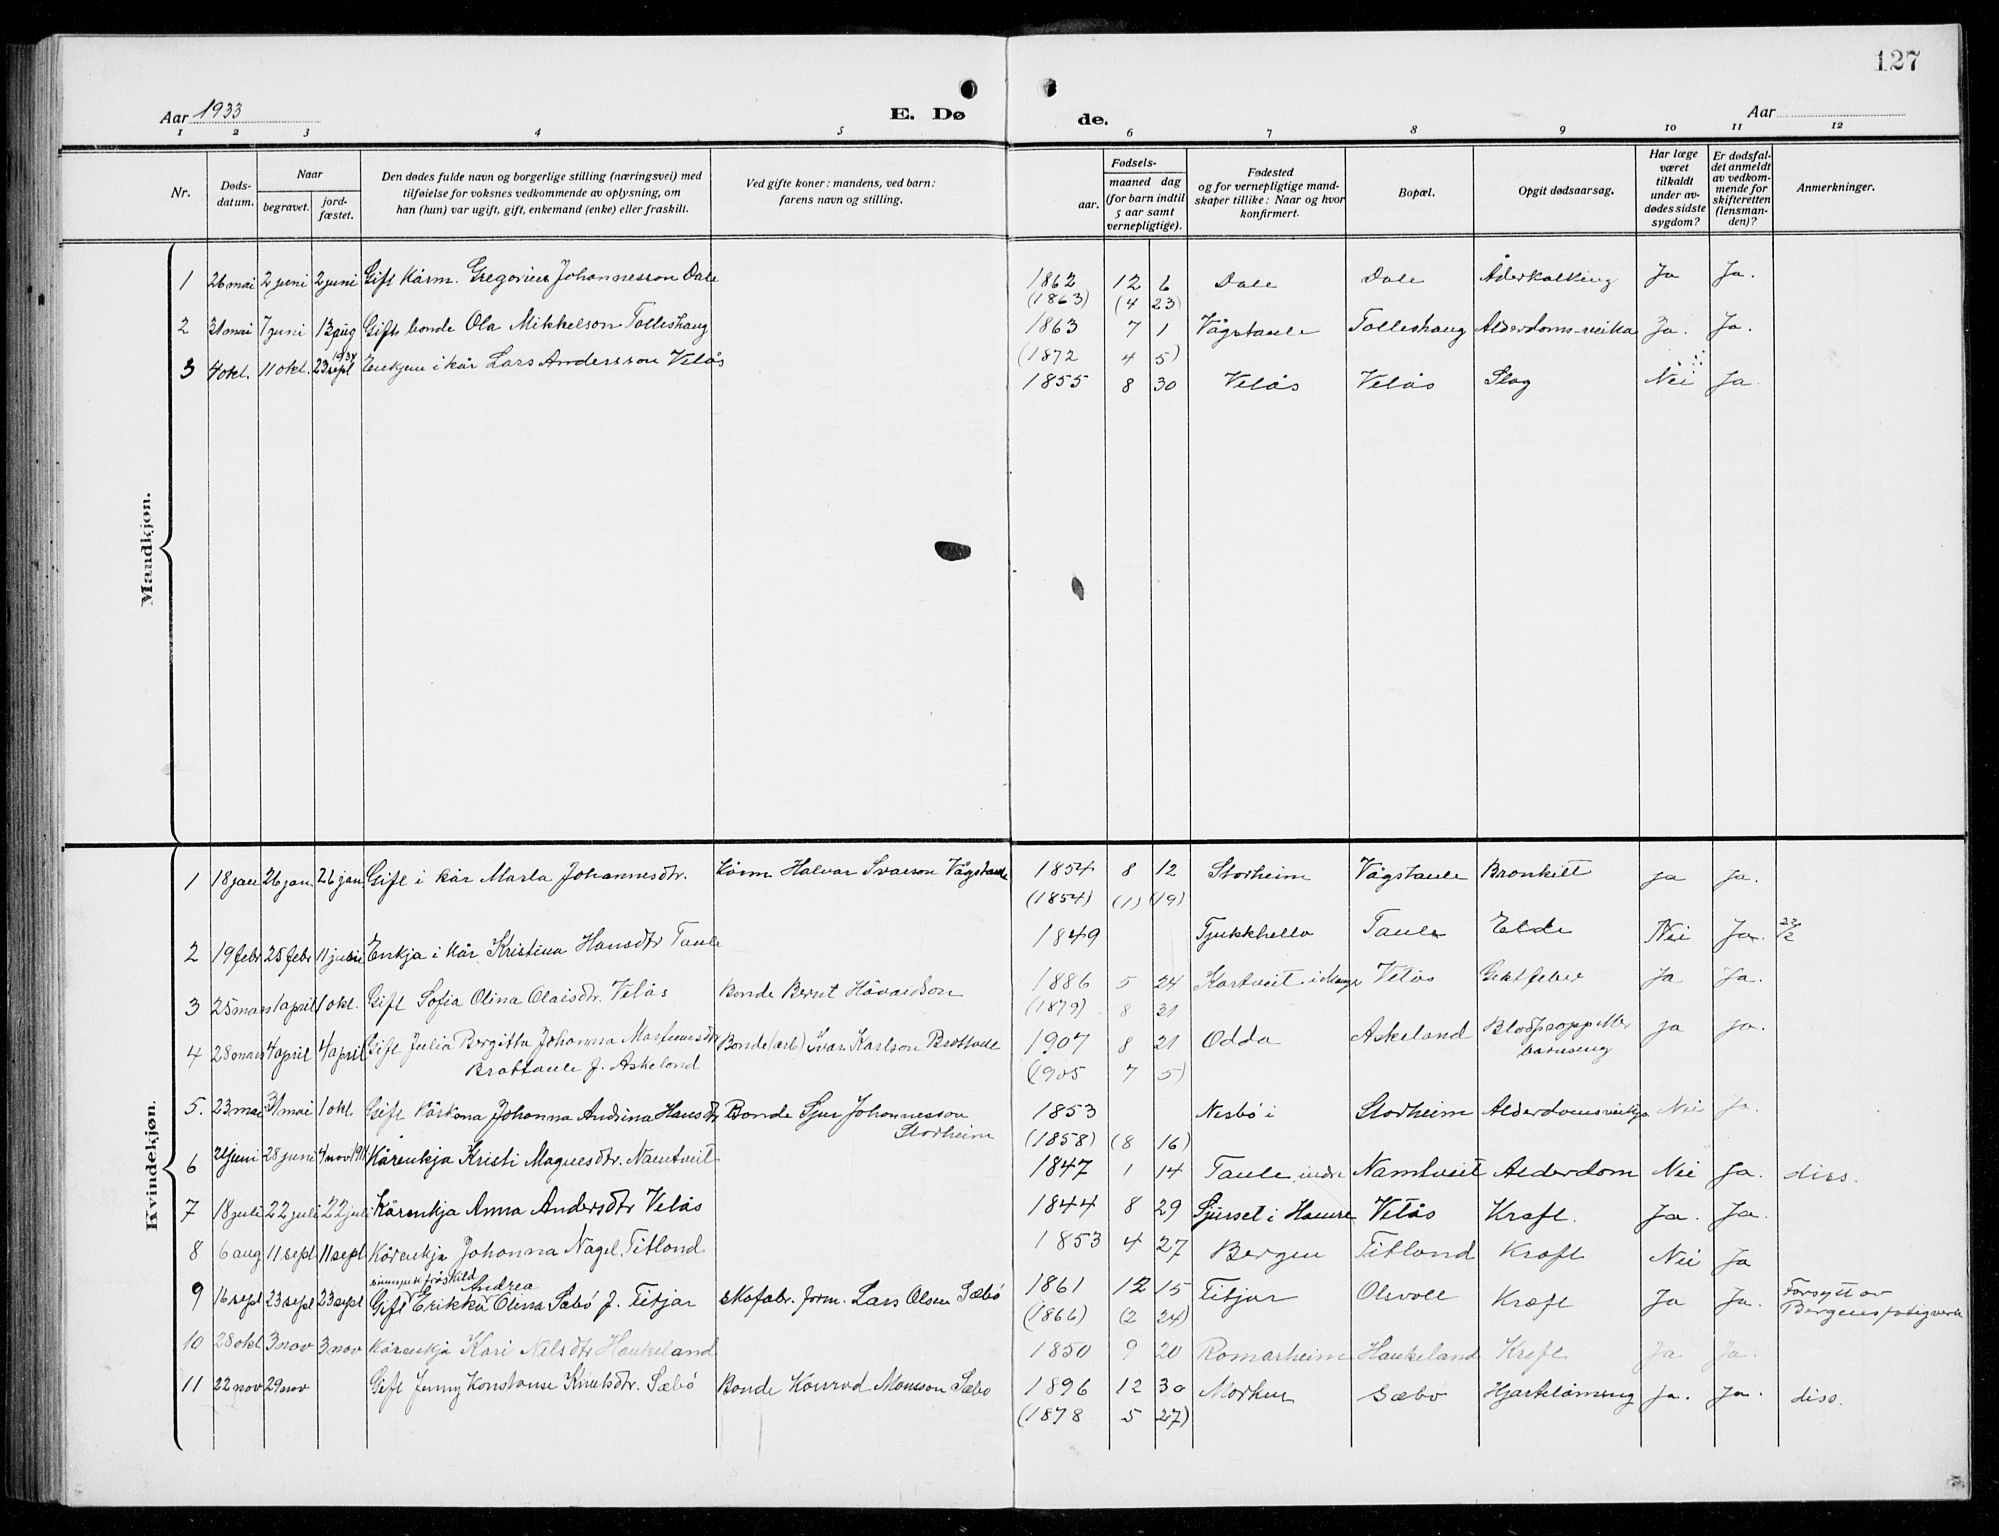 127
Aar 1933
E. Dø
de.
Aar
1 2 3 4 5 6 7 8 9 10 11 12
Nr.
Døds-
datum.
Naar
begravet.
jord-
fæstet.
Den dødes fulde navn og borgerlige stilling (næringsvei) med
tilføielse for voksnes vedkommende av oplysning, om
han (hun) var ugift, gift, enkemand (enke) eller fraskilt.
Ved gifte koner: mandens, ved barn:
farens navn og stilling.
Fødsels-
aar.
maaned dag
(for barn indtil
5 aar samt
vernepligtige).
Fødested
og for vernepligtige mand-
skaper tillike: Naar og hvor
konfirmert.
Bopæl.
Opgit dødsaarsag.
Har læge
været
tilkaldt
under av-
dødes sidste
sygdom?
Er dødsfal-
det anmeldt
av vedkom-
mende for
skifteretten
(lensman-
den)?
Anmerkninger.
Mandkjøn.
1 26 mai 2 juni 2 juni Gift kårm. Gregorius Johannesson Dale 1862 12 6 Dale Dale Åderkalking Ja Ja.
(1863) (4 23)
2 31 mai 7 juni 13 aug Gift bonde Ola Mikkelson Tolleshaug 1863 7 1 Vågstaule Tolleshaug Alderdoms-veika Ja. Ja.
(1872 4 5)
1934
3 4 okt. 11 okt. 23 sept Enkjem i kår Lars Andersson Velås 1855 8 30 Velås Velås Slag Nei Ja.
Kvindekjøn.
1 18 jan 26 jan. 26 jan Gift i kår Marta Johannesdtr. Kårm Halvar Ivarson Vågstaule 1854 8 12 Storheim Vågstaule Bronkitt ja ja.
(1854) (1) (19)
2 19 febr 25 febr 11 juni Enkja i kår Kristina Hansdtr Taule 1849 Tjukkhella Taule Elde Nei Ja. 23/2
3 25 mars 1 april 1 okt. Gift Sofia Olina Olaisdtr. Velås Bonde Bernt Håvardson 1886 5 24 Kartveit i Mange Velås Giktfeber Ja Ja.
(1879) 8 31
4 28 mars 4 april 4 april Gift Julia Bergitta Johanna Martinusdtr Bonde (arb) Ivar Karlson Brottaule 1907 8 21 Odda Askeland Blodpropp etter ja ja.
Brottaule f. Askeland barnseng
(1905 7 5)
5. 23 mai 31 mai 1 okt. Gift Kårkona Johanna Andrina Hansdtr Bonde Sjur Johannesson 1853 Nesbø i Storheim Alderdomsveikja Nei Ja.
Storheim
(1858) (8 16)
6 21 juni 28 juni 4 nov Kårenkja Kristi Magnesdtr. Namtveit 1847 1 14 Taule indre Namtveit Alderdom Nei Ja. diss.
7 18 juli 22 juli 22 juli Kårenkja Anna Andersdtr Velås 1844 8 29 Sjurset i Hamre Velås Kreft. Ja. Ja.
8 6 aug 11 sept 11 sept Kårenkja Johanna Nagel Titland 1853 4 27 Bergen Titland Kreft Nei Ja
fråskild Andrea
9 16 sept 23 sept 23 sept Gift Erikka Olina Sæbø f. Titjar skofabr. form. Lars Olsen Sæbø 1861 12 15 Titjar Olsvoll Kreft Ja Ja. Forsytt av
Bergens fatigvesen
(1866) (2 24)
10 28 okt 3 nov 3 nov Kårenkja Kari Nilsdtr Haukeland 1850 9 20 Romarheim Haukeland Kreft Ja Ja.
11 22 nov 29 nov Gift Jenny Konstanse Knutsdtr. Sæbø Bonde Konrad Monsson Sæbø 1896 12 30 Morken Sæbø Hjartelåming Ja. Ja. diss.
(1878 5 27)